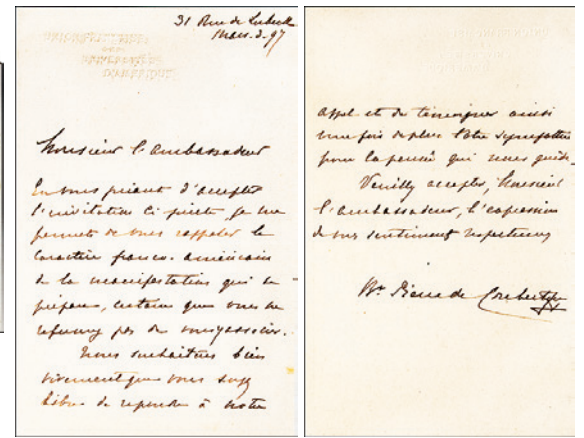 31 Rue de Lubeck
Mars. 3. 97
UNIVERSITAIRES
UNIVERSITÉS
D'AMÉRIQUE
Monsieur l'ambassadeur
En vous priant d'accepter
l'invitation ci jointe, je me
permets de vous rappeler le
caractère franco-américain
de la manifestation qui se
prépare, certain que vous ne
refuserez pas de vous y associer.
Nous souhaitons bien
vivement que vous soyez
libre de répondre à notre
appel et de témoigner ainsi
une fois de plus votre sympathie
pour la pensée qui nous guide.
Veuillez accepter, Monsieur
l'ambassadeur, l'expression
de mes sentiments respectueux
Bn Pierre de Coubertin